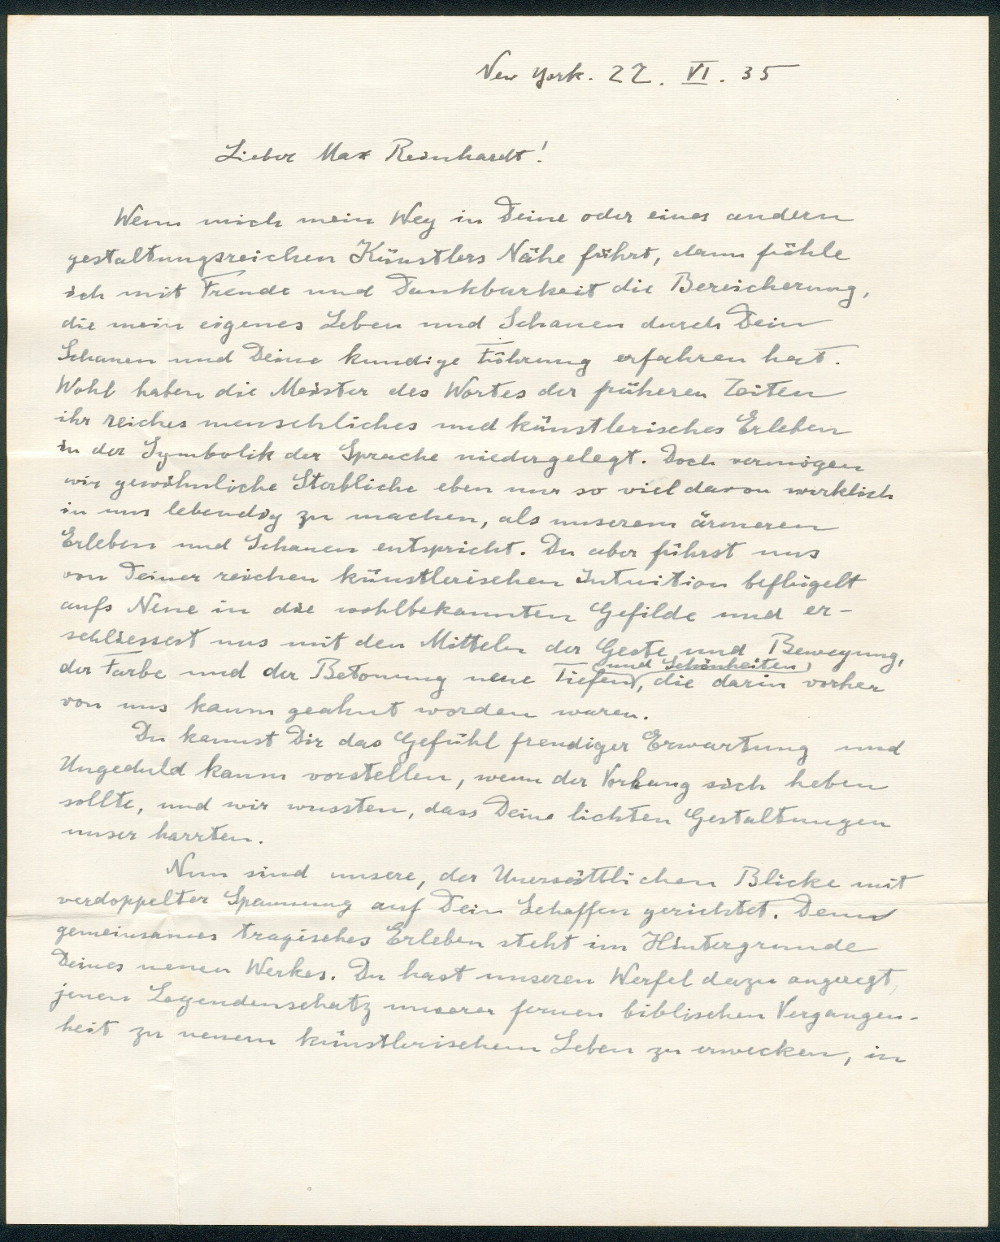 New York. 22. VI. 35
Lieber Max Reinhardt!
Wenn mich mein Weg in Deine oder eines andern
gestaltungsreichen Künstlers Nähe führt, dann fühle
ich mit Freude und Dankbarkeit die Bereicherung,
die mein eigenes Leben und Schauen durch Dein
Schauen und Deine kundige Führung erfahren hat.
Wohl haben die Meister des Wortes der früheren Zeiten
ihr reiches menschliches und künstlerisches Erleben
in der Symbolik der Sprache niedergelegt. Doch vermögen
wir gewöhnliche Sterbliche eben nur so viel davon wirklich
in uns lebendig zu machen, als unserem ärmeren
Erleben und Schauen entspricht. Du aber führst uns
von Deiner reichen künstlerischen Intuition beflügelt
aufs Neue in die wohlbekannten Gefilde und er-
schliessest uns mit den Mitteln der Geste und Bewegung,
der Farbe und der Betonung neue Tiefen (und Schönheiten), die darin vorher
von uns kaum geahnt worden waren.
Du kannst Dir das Gefühl freudiger Erwartung und
Ungeduld kaum vorstellen, wenn der Vorhang sich heben
sollte, und wir wussten, dass Deine lichten Gestaltungen
unser harrten.
Nun sind unsere, der Unersättlichen Blicke mit
verdoppelter Spannung auf Dein Schaffen gerichtet. Denn
gemeinsames tragisches Erleben steht im Hintergrunde
Deines neuen Werkes. Du hast unseren Werfel dazu angeregt,
jenen Legendenschatz unserer fernen biblischen Vergangen-
heit zu neuem künstlerischem Leben zu erwecken, in